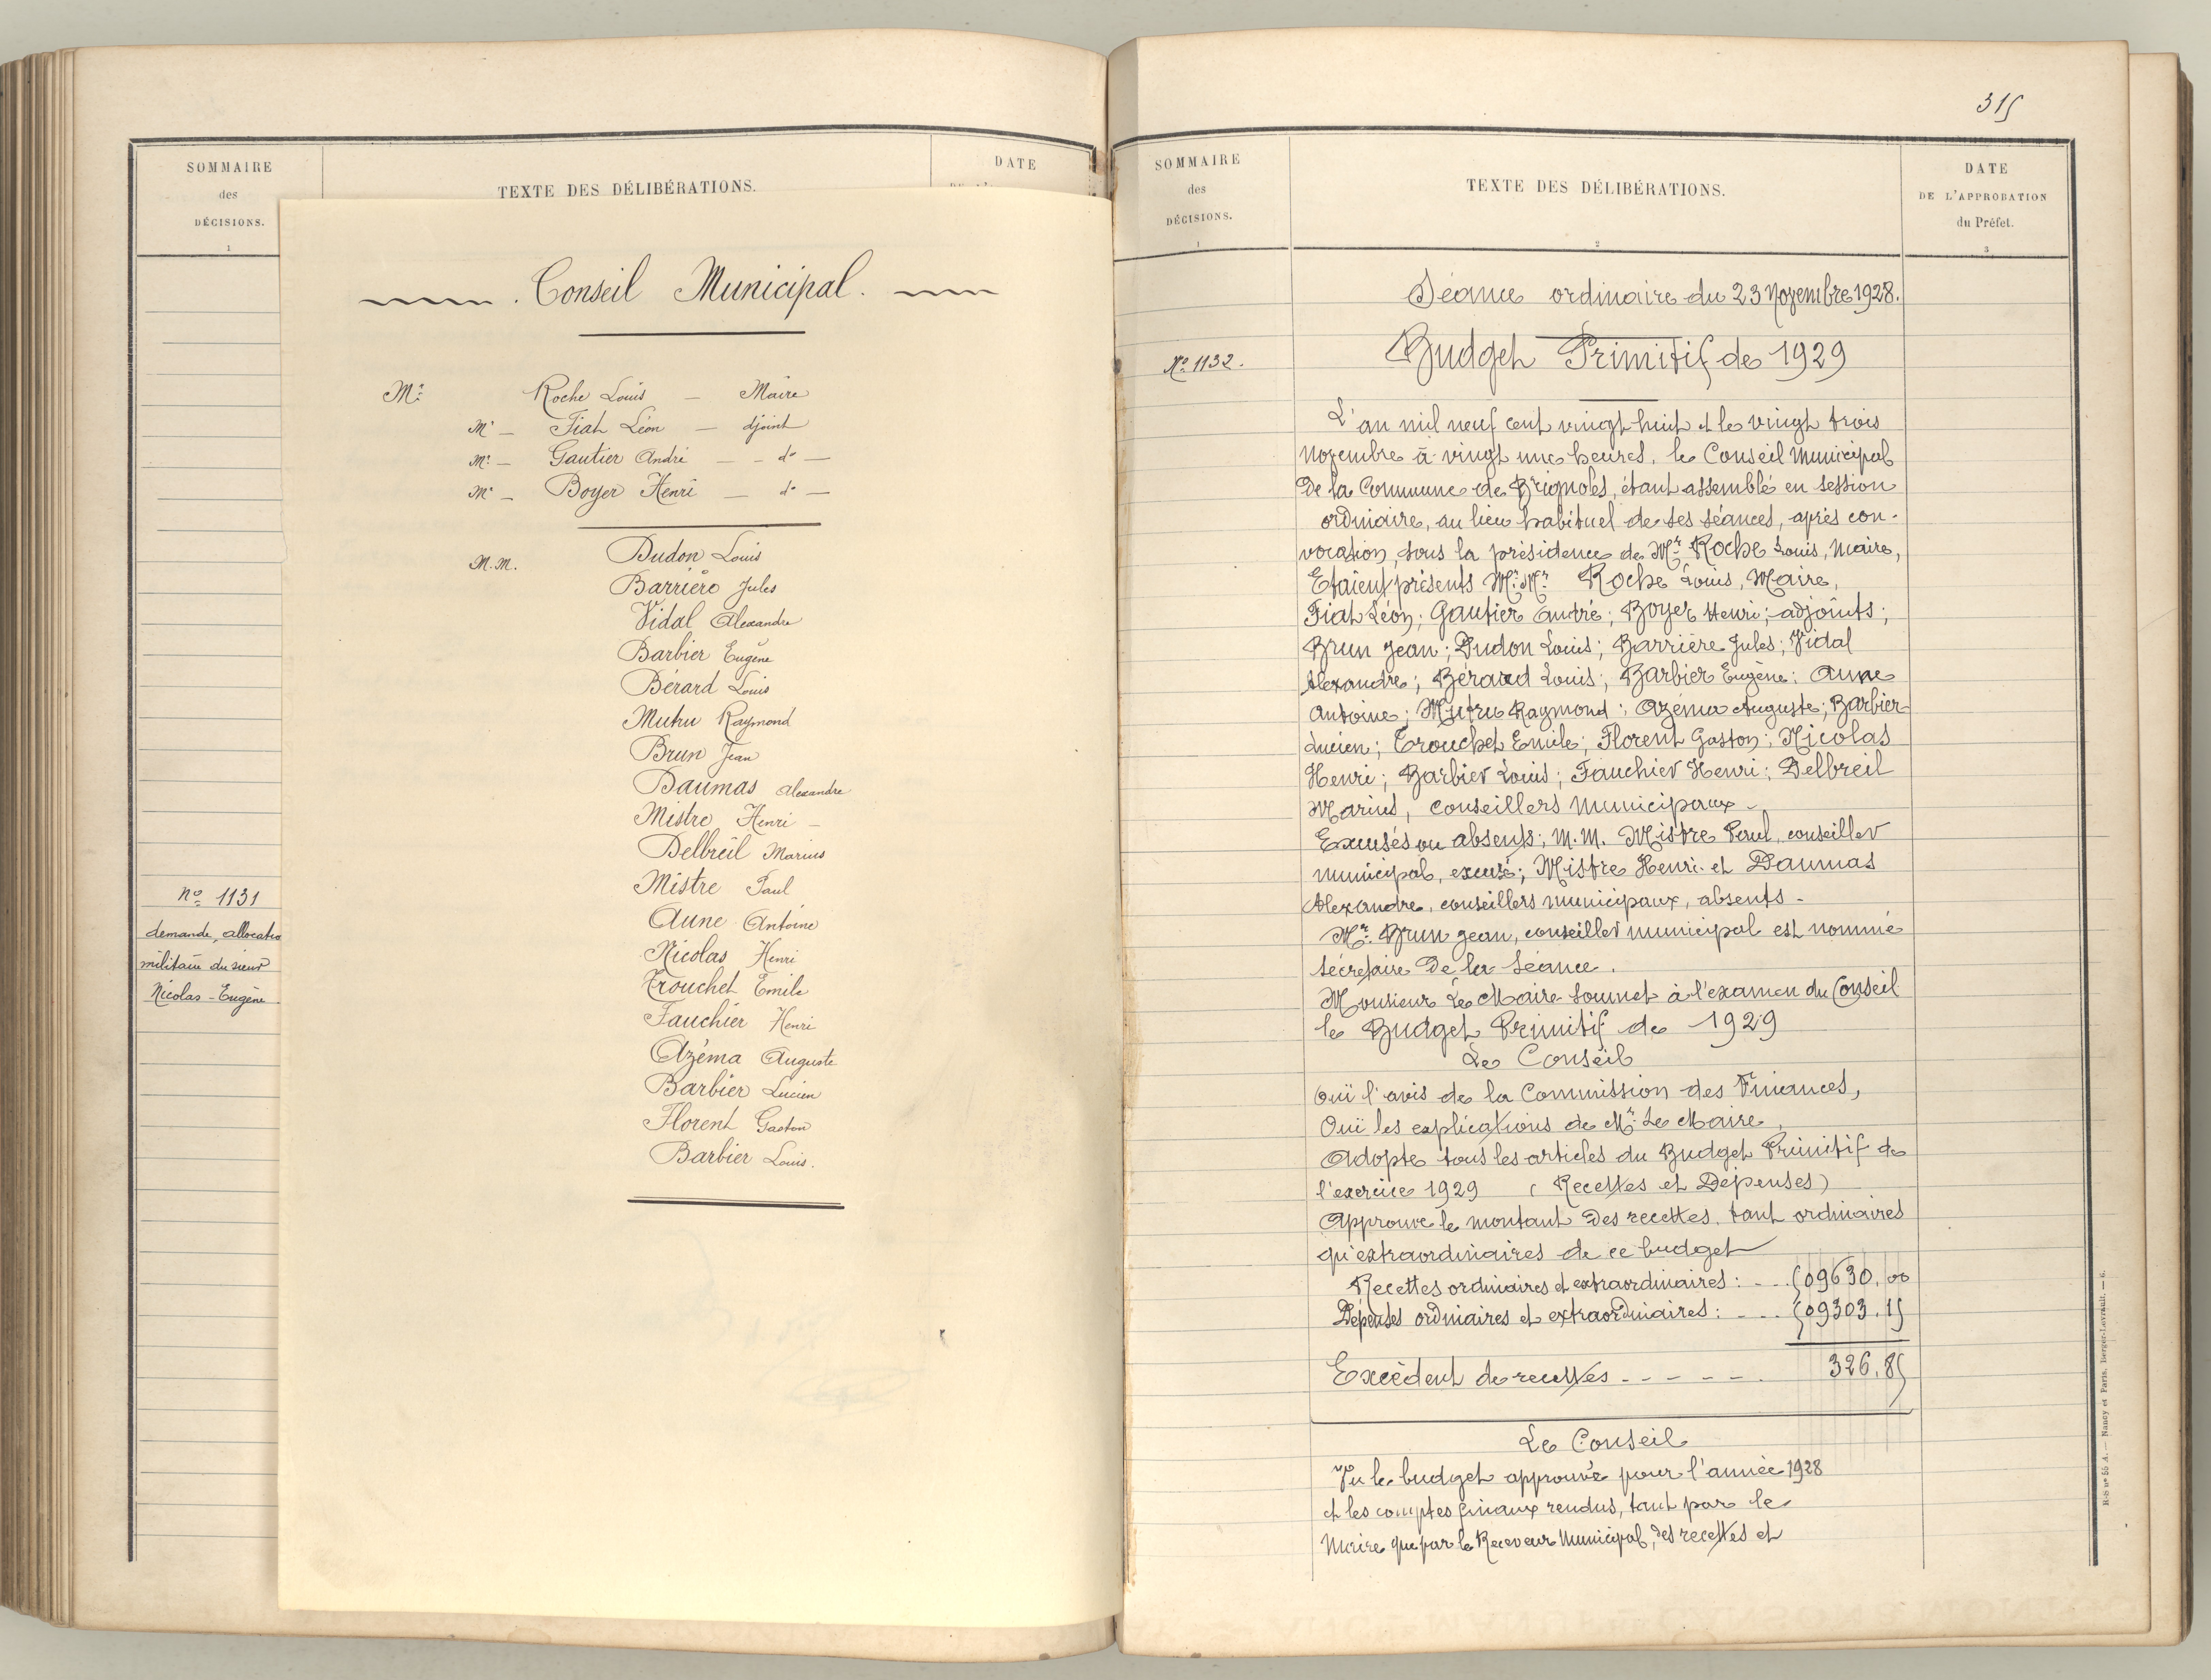 SOMMAIRE
des
DÉCISIONS.
1
TEXTE DES DÉLIBÉRATIONS.
DATE
Conseil Municipal.
Mr Roche Louis — Maire
Mr — Fiat Léon — djoint
Mr — Gautier André — — do —
Mr — Boyer Henri — do —
M.M. Dudon Louis
Barrière Jules
Vidal Alexandre
Barbier Eugène
Bérard Louis
Mutru Raymond
Brun Jean
Daumas Alexandre
Mistre Henri —
Delbreil Marius
Mistre Paul
Aune Antoine
Nicolas Henri
Trouchet Emile
Fauchier Henri
Azéma Auguste
Barbier Lucien
Florent Gaston
Barbier Louis.
No 1131
demande, allocatio
militaire du sieur
Nicolas - Eugène
315
SOMMAIRE
des
DÉCISIONS.
1
TEXTE DES DÉLIBÉRATIONS.
2
DATE
DE L'APPROBATION
du Préfet.
3
Séance ordinaire du 23 Novembre 1928.
No 1132.
Budget Primitif de 1929
L'an mil neuf cent vingt huit et le vingt trois
Novembre à vingt une heures, le Conseil Municipal
De la Commune de Brignoles, étant assemblé en session
ordinaire, au lieu habituel de ses séances, après con-
vocation, sous la présidence de Mr Roche Louis, Maire,
Etaient présents Mr. Mr Roche Louis, Maire,
Fiat Léon; Gautier André; Boyer Henri; adjoints;
Brun Jean; Dudon Louis; Barrière Jules; Vidal
Alexandre; Bérard Louis; Barbier Eugène; Aune
Antoine; Mutru Raymond; Azéma Auguste; Barbier
Lucien; Trouchet Emile; Florent Gaston; Nicolas
Henri; Barbier Louis; Fauchier Henri; Delbreil
Marius, conseillers municipaux -
Excusés ou absents; M.M. Mistre Paul, conseiller
municipal, excusé; Mistre Henri et Daumas
Alexandre, conseillers municipaux, absents -
Mr Brun Jean, conseiller municipal est nommé
sécrétaire De la séance.
Monsieur Le Maire soumet à l'examen du Conseil
le Budget Primitif de 1929
Le Conseil
Ouï l'avis de la Commission des Finances,
Ouï les explications de Mr Le Maire,
Adopte tous les articles du Budget Primitif de
l'exercice 1929 (Recettes et Dépenses)
Approuve le montant Des recettes, tant ordinaires
qu'extraordinaires de ce budget
Recettes ordinaires et extraordinaires: - .. 509630,00
Dépenses ordinaires et extraordinaires: - ... 509303,15
Excédent de recettes - - - - - - . 326,85
Le Conseil
Vu le budget approuvé pour l'année 1928
et les comptes finaux rendus, tant par le
Maire que par le Receveur Municipal, des recettes et
R-S no 55 A. — Nancy et Paris, Berger-Levrault. — 6.